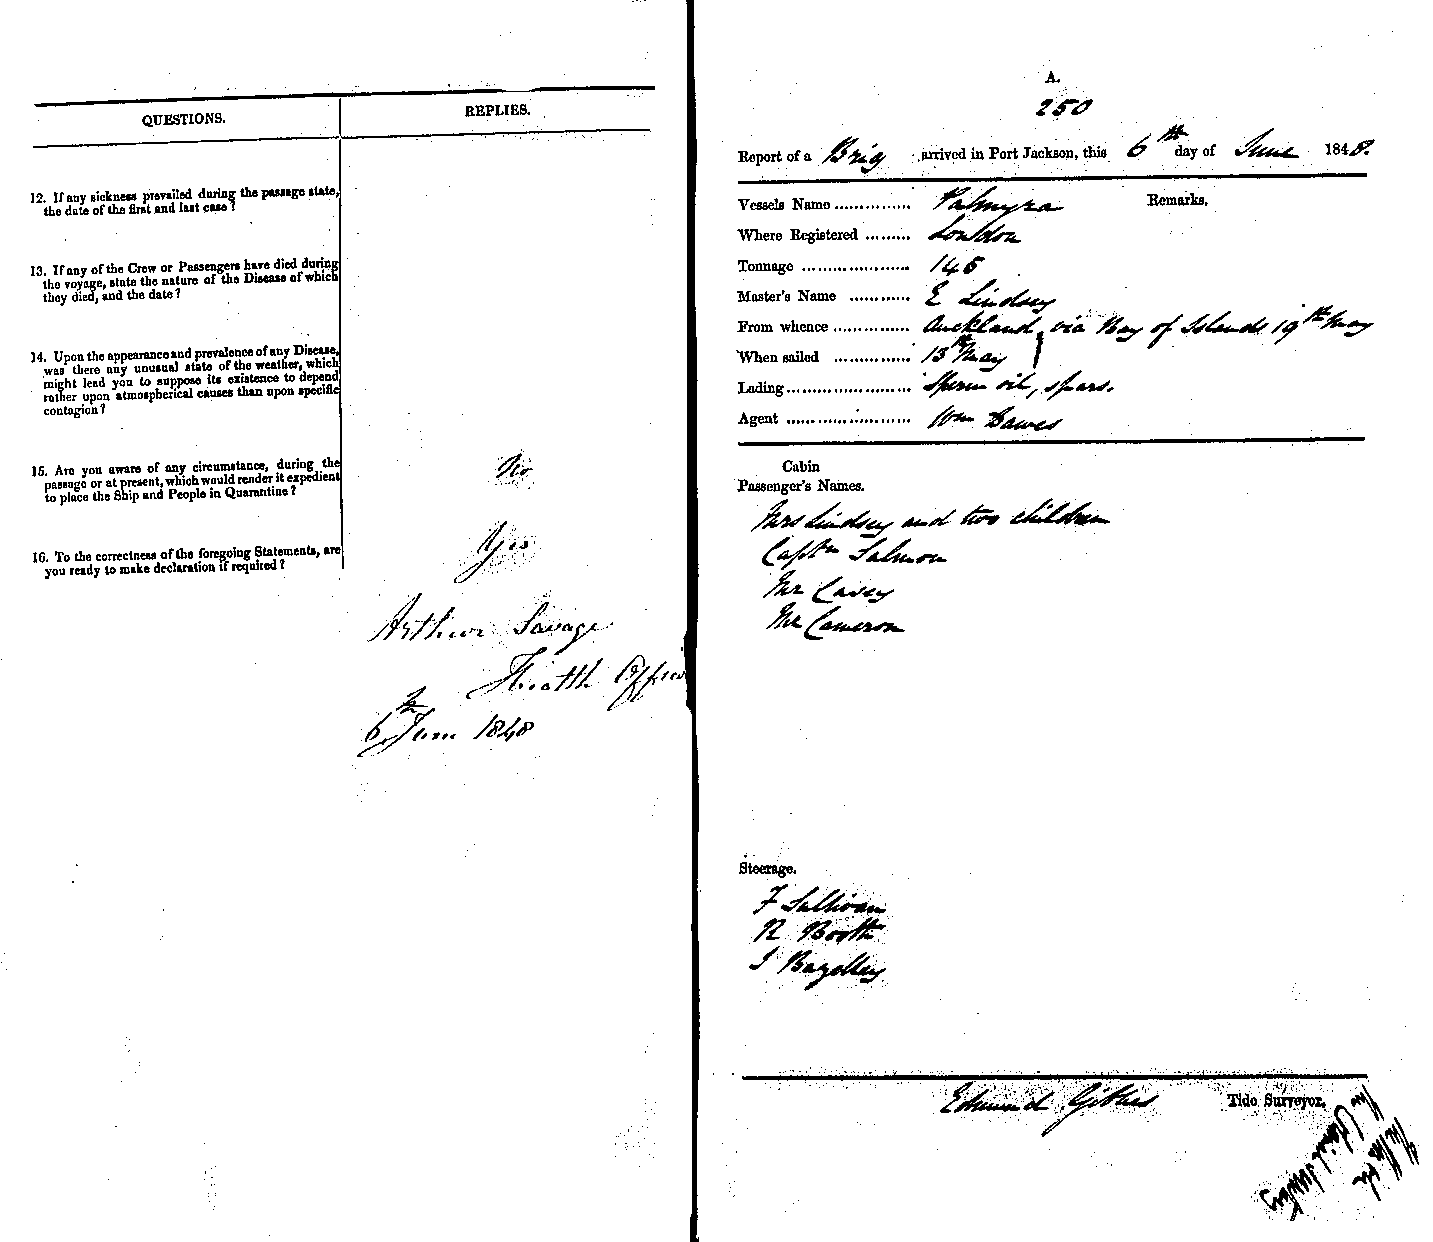 QUESTIONS.
REPLIES.
12. If any sickness prevailed during the passage state,
the date of the first and last case?
13. If any of the Crew or Passengers have died during
the voyage, state the nature of the Disease of which
they died, and the date?
14. Upon the appearance and prevalence of any Disease,
was there any unusual state of the weather, which
might lead you to suppose its existence to depend
rather upon atmospherical causes than upon specific
contagion?
15. Are you aware of any circumstance, during the
passage or at present, which would render it expedient
to place the Ship and People in Quarantine?
No
16. To the correctness of the foregoing Statements, are
you ready to make declaration if required?
Yes
Arthur Savage
Health Officer
6th June 1848
A.
250
Report of a Brig arrived in Port Jackson, this 6th day of June 1848.
Vessels Name Palmyra Remarks.
Where Registered London
Tonnage 145
Master's Name E Lindsey
From whence Auckland, via Bay of Islands 19th May
When sailed 13th May
Lading Sperm oil, spars.
Agent Wm Dawes
Cabin
Passenger's Names.
Mrs Lindsey and two children
Captn Salmon
Mr Casey
Mr Cameron
Steerage.
F Sullivan
R Booth
J Bagelley
Edmund Tide Surveyor.